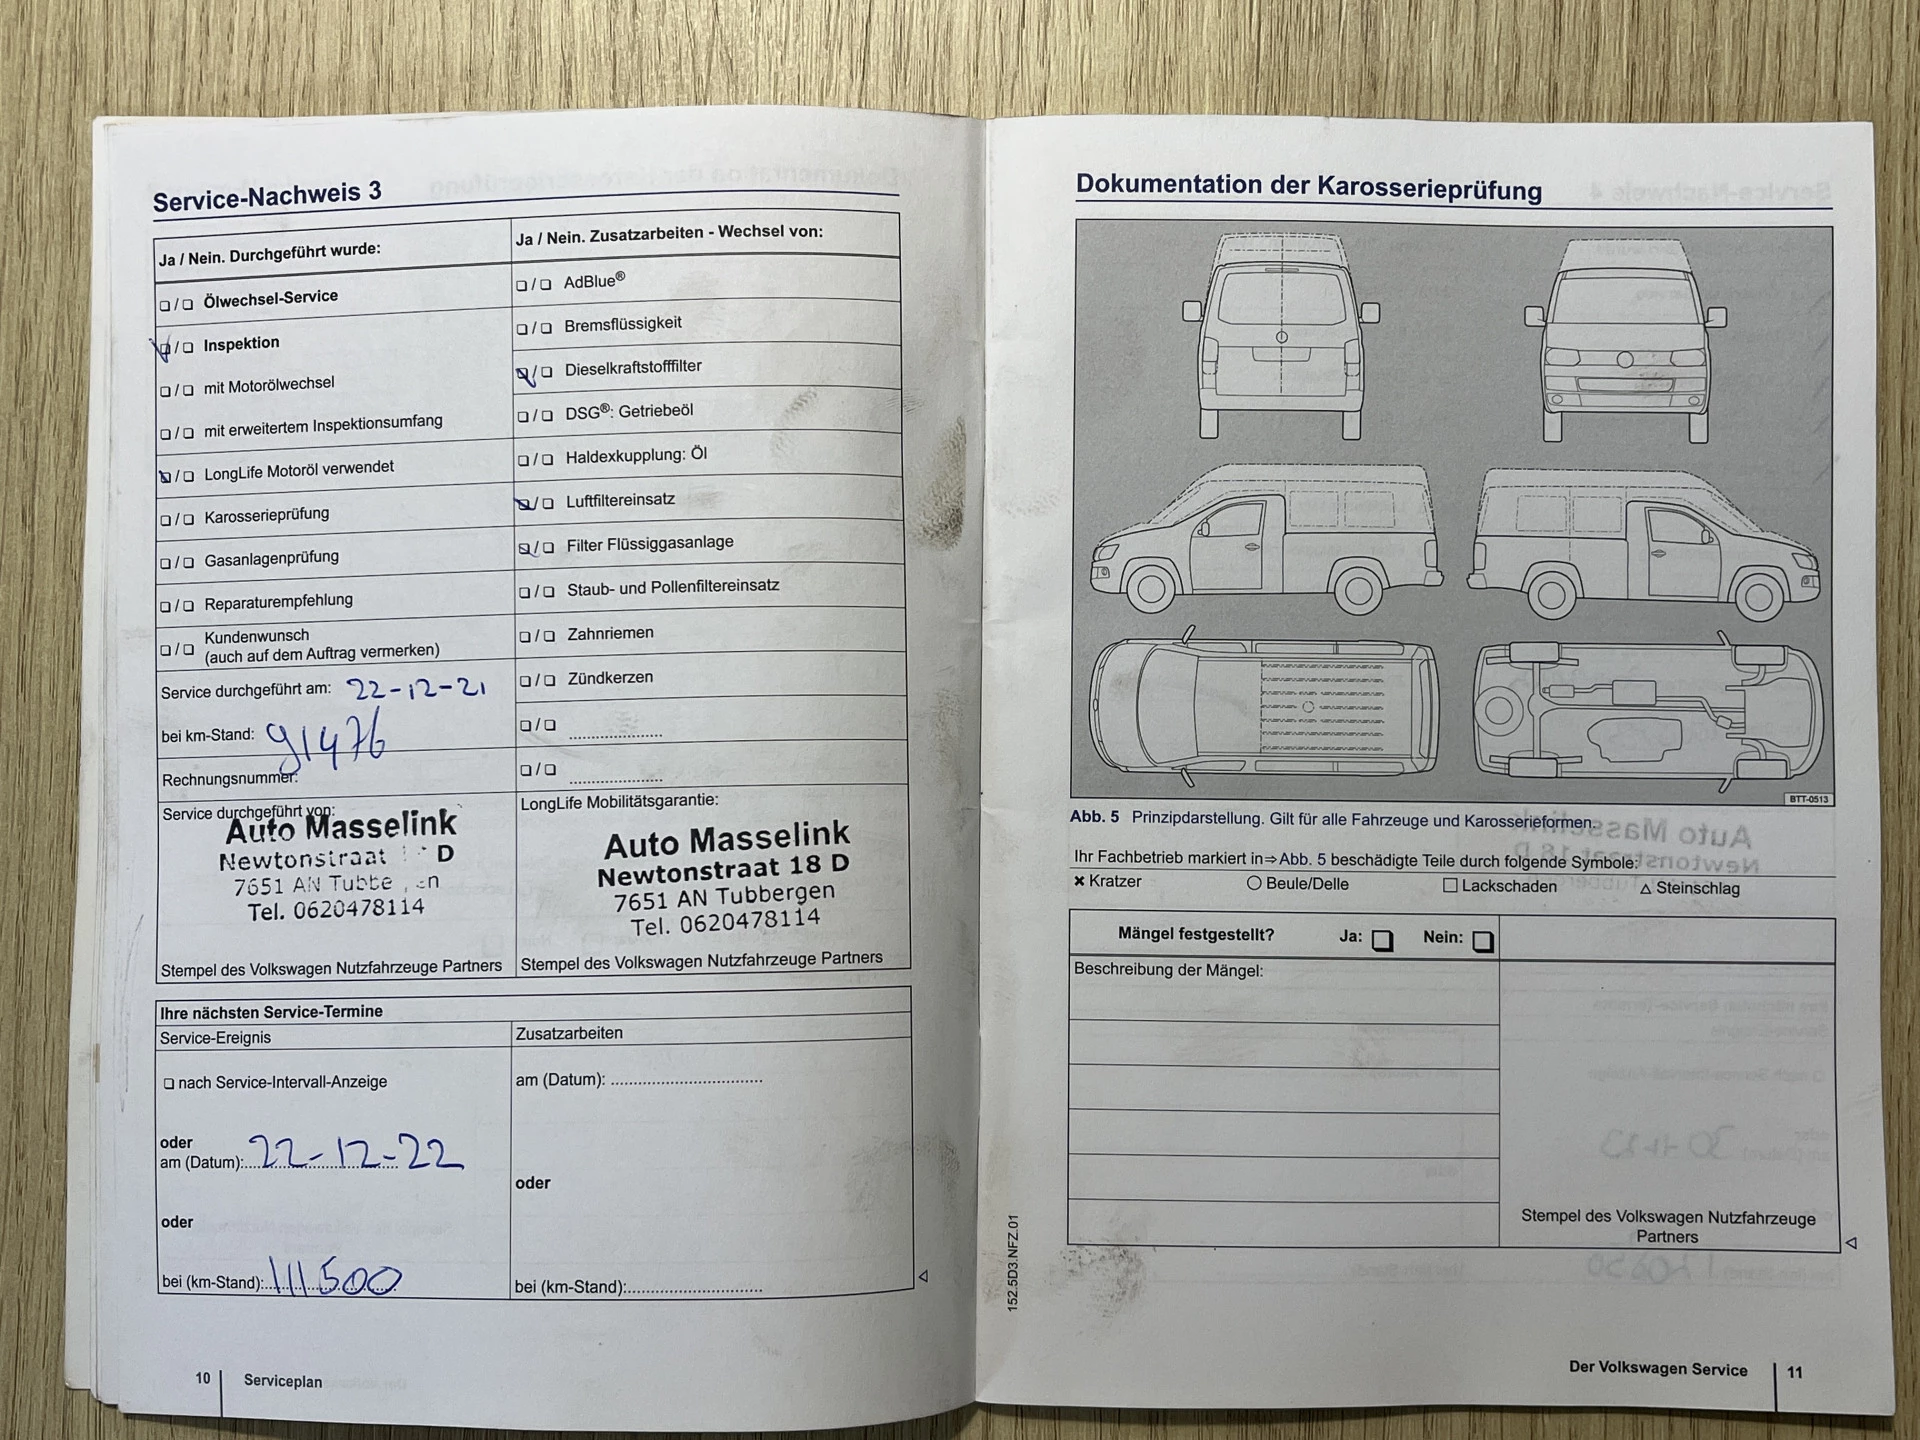 Service-Nachweis 3
Ja / Nein. Durchgeführt wurde:
❑ / ❑ Ölwechsel-Service
❑ / ❑ Inspektion
❑ / ❑ mit Motorölwechsel
❑ / ❑ mit erweitertem Inspektionsumfang
❑ / ❑ LongLife Motoröl verwendet
❑ / ❑ Karosserieprüfung
❑ / ❑ Gasanlagenprüfung
❑ / ❑ Reparaturempfehlung
❑ / ❑ Kundenwunsch
(auch auf dem Auftrag vermerken)
Service durchgeführt am: 22-12-21
bei km-Stand: 91476
Rechnungsnummer:
Service durchgeführt von:
Auto Masselink
Newtonstraat D
7651 AN
Tel. 0620478114
Stempel des Volkswagen Nutzfahrzeuge Partners
Ja / Nein. Zusatzarbeiten - Wechsel von:
❑ / ❑ AdBlue®
❑ / ❑ Bremsflüssigkeit
❑ / ❑ Dieselkraftstofffilter
❑ / ❑ DSG®: Getriebeöl
❑ / ❑ Haldexkupplung: Öl
❑ / ❑ Luftfiltereinsatz
❑ / ❑ Filter Flüssiggasanlage
❑ / ❑ Staub- und Pollenfiltereinsatz
❑ / ❑ Zahnriemen
❑ / ❑ Zündkerzen
❑ / ❑ ......................
❑ / ❑ ......................
LongLife Mobilitätsgarantie:
Auto Masselink
Newtonstraat 18 D
7651 AN Tubbergen
Tel. 0620478114
Stempel des Volkswagen Nutzfahrzeuge Partners
Ihre nächsten Service-Termine
Service-Ereignis
❑ nach Service-Intervall-Anzeige
oder
am (Datum): 22-12-22
oder
bei (km-Stand): 111500
Zusatzarbeiten
am (Datum): ....................................
oder
bei (km-Stand):................................
10 Serviceplan
Dokumentation der Karosserieprüfung
BTT-0513
Abb. 5 Prinzipdarstellung. Gilt für alle Fahrzeuge und Karosserieformen.
Ihr Fachbetrieb markiert in⇒Abb. 5 beschädigte Teile durch folgende Symbole:
✖ Kratzer ○ Beule/Delle □ Lackschaden △ Steinschlag
Mängel festgestellt? Ja: ❑ Nein: ❑
Beschreibung der Mängel:
Stempel des Volkswagen Nutzfahrzeuge
Partners
152.5D3.NFZ.01
Der Volkswagen Service 11